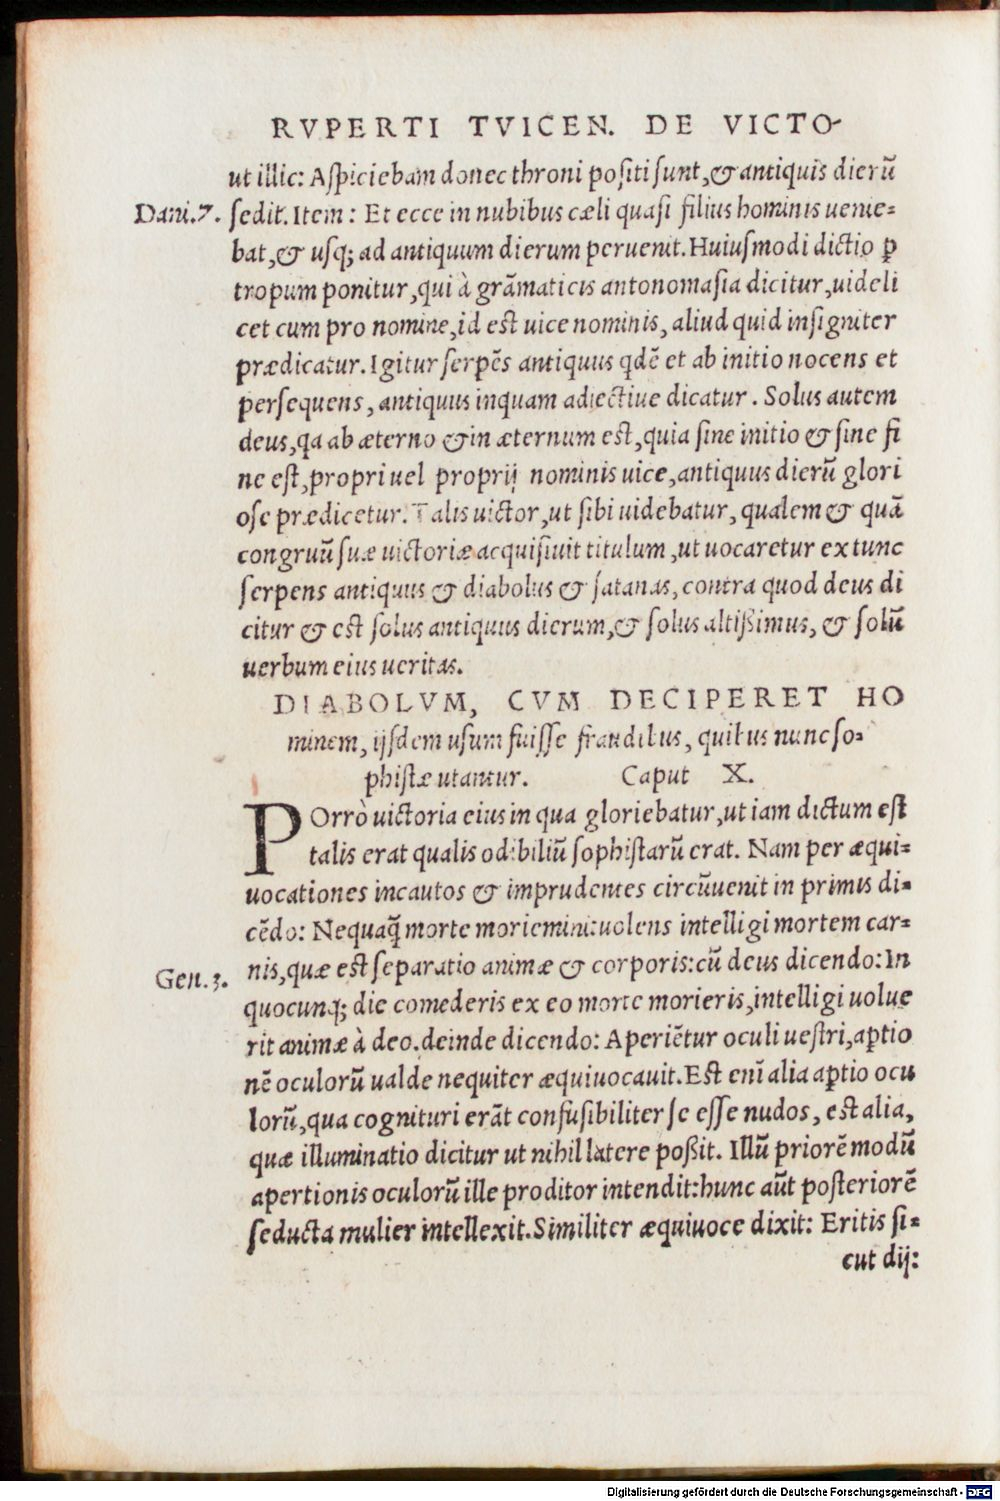 RVPERTI TVICEN. DE VICTO-
ut illic: Aſpiciebam donec throni poſiti ſunt, & antiquis dierũ
Dani.7. ſedit. Item: Et ecce in nubibus cæli quaſi filius hominis uenie-
bat, & uſq; ad antiquum dierum peruenit. Huiuſmodi dictio ꝑ
tropum ponitur, qui à grãmaticis antonomaſia dicitur, uideli
cet cum pro nomine, id est uice nominis, aliud quid inſigniter
prædicatur. Igitur ſerpẽs antiquus qdẽ et ab initio nocens et
perſequens, antiquus inquam adiectiue dicatur. Solus autem
deus, qa ab æterno & in æternum est, quia ſine initio & ſine fi
ne eſt, propri uel proprij nominis uice, antiquus dierũ glori
oſe prædicetur. Talis uictor, ut ſibi uidebatur, qualem & quã
congruũ ſuæ uictoriæ acquiſiuit titulum, ut uocaretur ex tunc
ſerpens antiquus & diabolus & ſatanas, contra quod deus di
citur & est ſolus antiquus dierum, & ſolus altißimus, & ſolũ
uerbum eius ueritas.
DIABOLVM, CVM DECIPERET HO
minem, ijſdem uſum fuiſſe fraudibus, quibus nunc ſo-
phiſtæ utantur. Caput X.
POrrò uictoria eius in qua gloriebatur, ut iam dictum eſt
talis erat qualis odibiliũ ſophiſtarũ erat. Nam per æqui-
uocationes incautos & imprudentes circũuenit in primis di-
cẽdo: Nequaq̃ morte moriemini: uolens intelligi mortem car-
Gen.3. nis, quæ eſt ſeparatio animæ & corporis: cũ deus dicendo: In
quocunq; die comederis ex eo morte morieris, intelligi uolue
rit animæ à deo. deinde dicendo: Aperiẽtur oculi ueſtri, aꝑtio
nẽ oculorũ ualde nequiter æquiuocauit. Est enĩ alia aꝑtio ocu
lorũ, qua cognituri erãt confuſibiliter ſe eſſe nudos, est alia,
quæ illuminatio dicitur ut nihil latere poßit. Illũ priorẽ modũ
apertionis oculorũ ille proditor intendit: hunc aũt poſteriorẽ
ſeducta mulier intellexit. Similiter æquiuoce dixit: Eritis ſi-
cut dij:
Digitalisierung gefördert durch die Deutsche Forschungsgemeinschaft - DFG